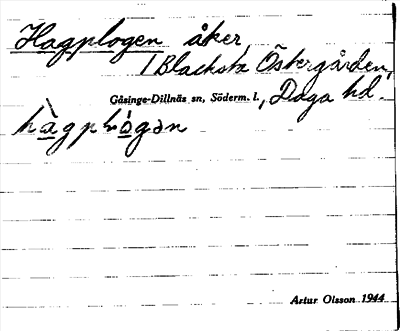 Hagplogen åker,
1 Blacksta Östergården,
Gåsinge-Dillnäs sn, Söderm. l., Daga hd.
Artur Olsson 1944